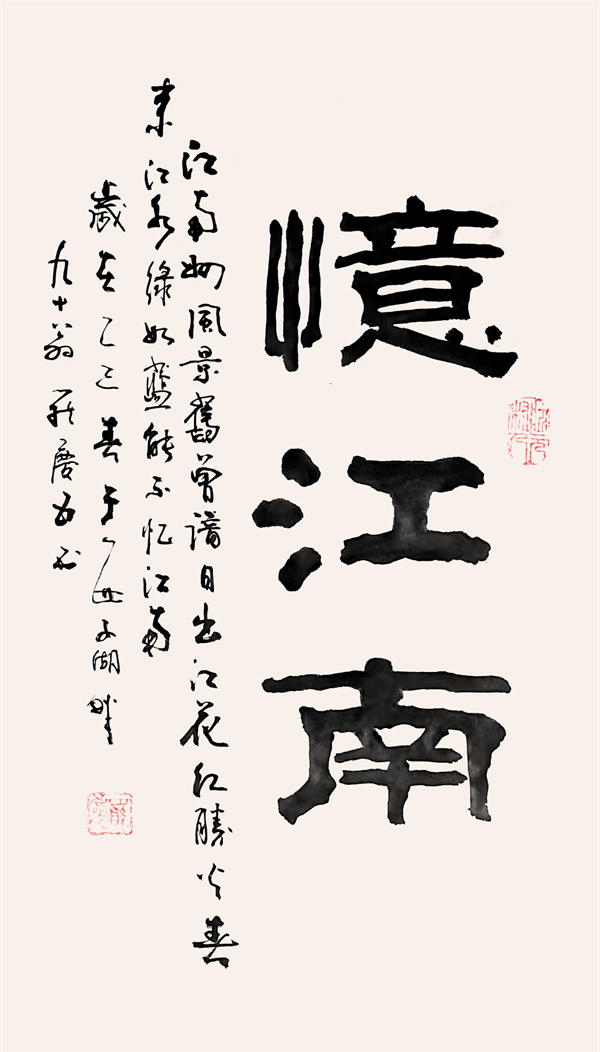 憶江南
江南好風景舊曾諳日出江花红勝火春
来江水綠如藍能不忆江南
歲在乙巳春于西子湖畔
九十翁